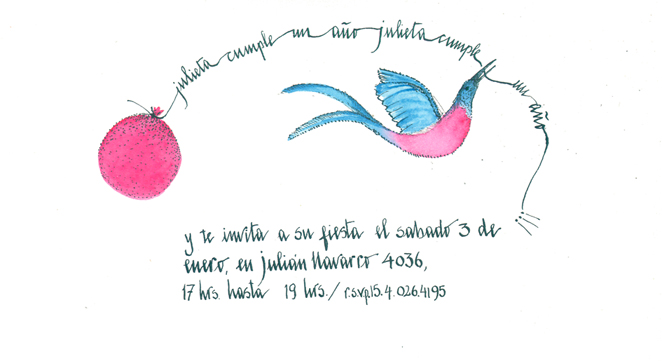 julieta cumple un año julieta cumple un año
y te invita a su fiesta el sabado 3 de
enero, en julián Navarro 4036,
17 hrs. hasta 19 hrs./ r.s.v.p.15.4.026.4195